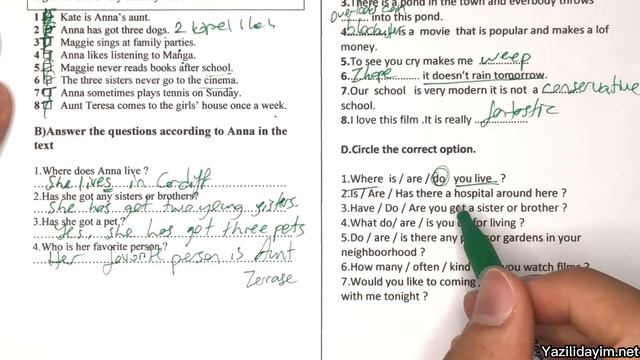 1. Kate is Anna's aunt.
2. Anna has got three dogs. 2
3. Maggie sings at family parties.
4. Anna likes listening to Manga.
5. Maggie never reads books after school.
6. The three sisters never go to the cinema.
7. Anna sometimes plays tennis on Sunday.
8. Aunt Teresa comes to the girls' house once a week.
B)Answer the questions according to Anna in the
text
1.Where does Anna live ?
She lives in Cardiff
2.Has she got any sisters or brothers?
She has got two young sisters.
3.Has she got a pet?
Yes, she has got three pets
4.Who is her favorite person ?
Her favorite person is Aunt
3.There is a pond in the town and everybody throws
into this pond.
4. is a movie that is popular and makes a lof
money.
5.To see you cry makes me weep
6. I hope it doesn't rain tomorrow.
7.Our school is very modern it is not a conservative
school.
8.I love this film .It is really fantastic
D.Circle the correct option.
1.Where is / are / do you live ?
2.Is / Are / Has there a hospital around here ?
3.Have / Do / Are you got a sister or brother ?
4.What do/ are / is you for living ?
5.Do / are / is there any or gardens in your
neighboorhood ?
6.How many / often / kind you watch films ?
7.Would you like to coming
with me tonight ?
Yazilidayim.net